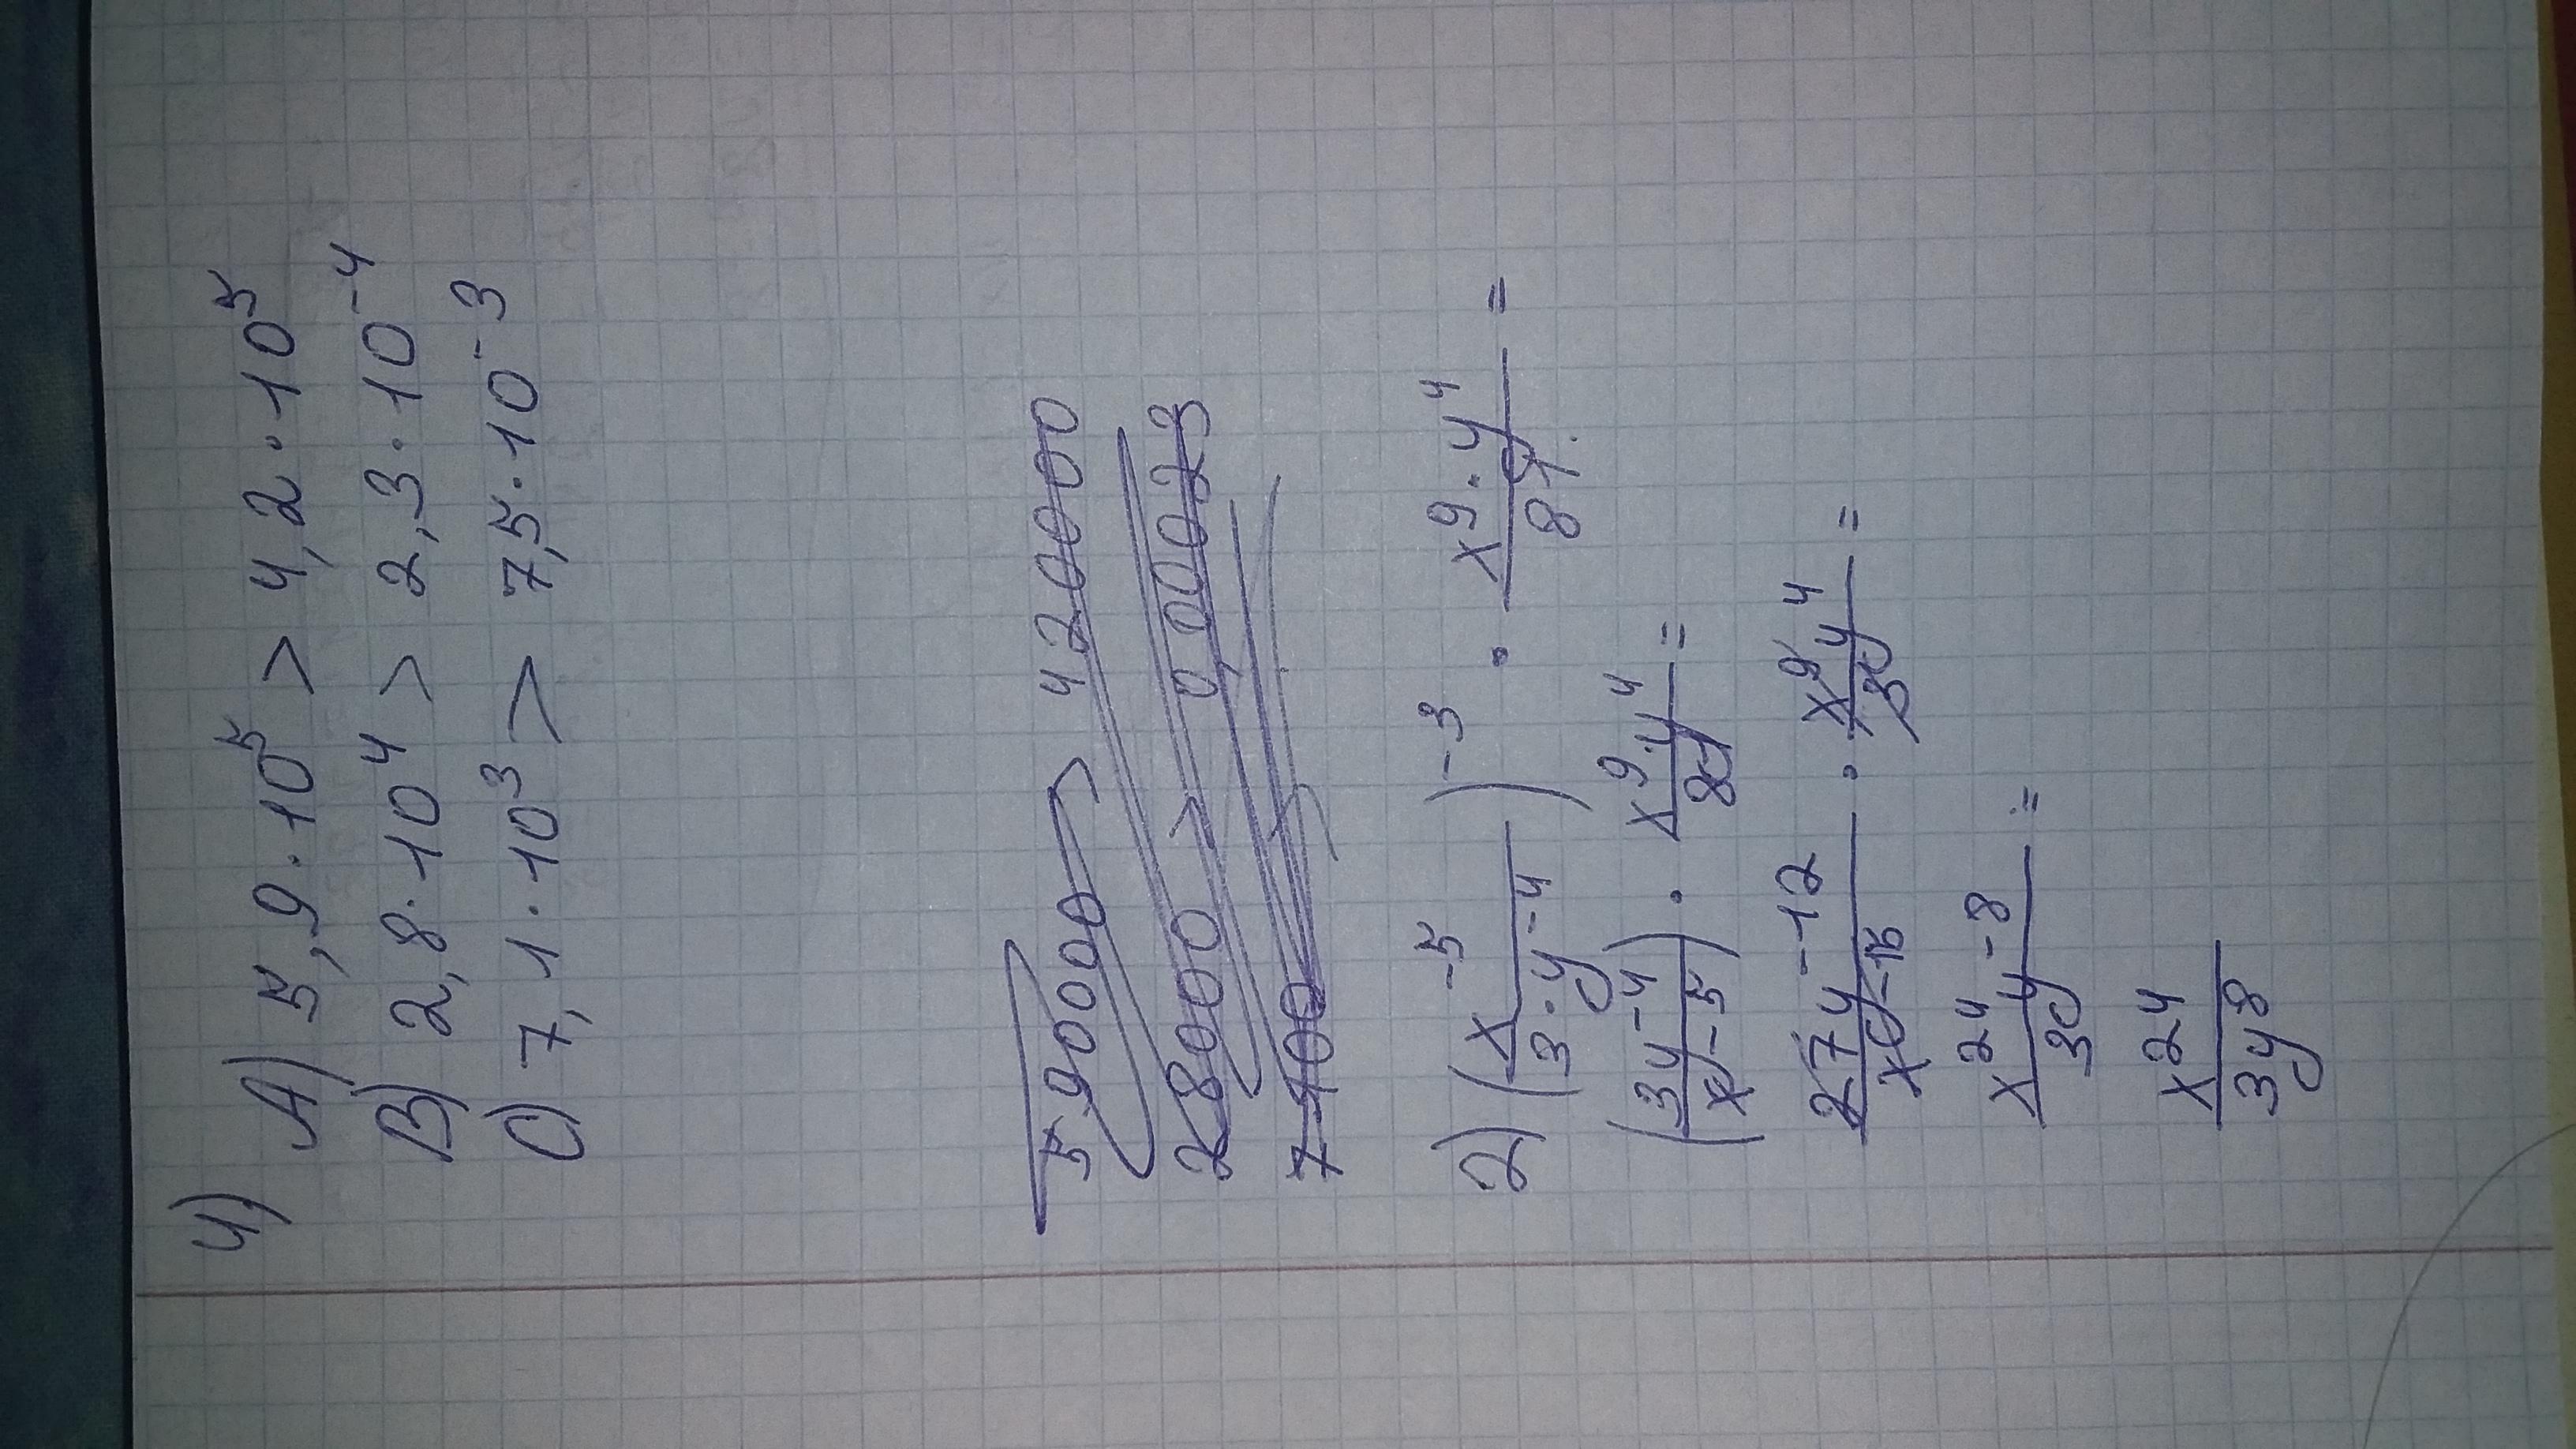 4) A) 5,9·10⁵ > 4,2·10⁵
B) 2,8·10⁴ > 2,3·10⁻⁴
C) 7,1·10³ > 7,5·10⁻³
590000 > 420000
28000 > 0,00023
7100
2) (x⁻⁵/(3·y⁻⁴))⁻³ · (x⁹·y⁴)/81 =
(3y⁻⁴/x⁻⁵) · (x⁹·y⁴)/81 =
27y⁻¹²/x⁻¹⁵ · x⁹y⁴/3 =
x²⁴y⁻⁸/3 =
x²⁴/3y⁸